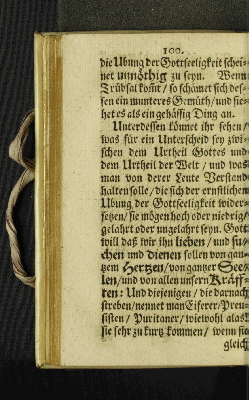 100.
die Ubung der Gottseeligkeit schei-
net unnöthig zu seyn. Wenn
Trübsal kom̃t / so schämet sich des-
sen ein munteres Gemüth / und sie-
het es als ein gehässig Ding an.
Unterdessen könnet ihr sehen /
was für ein Unterscheid sey zwi-
schen dem Urtheil Gottes und
dem Urtheil der Welt / und was
man von derer Leute Verstand
halten solle / die sich der ernstlichen
Ubung der Gottseeligkeit wider-
setzen / sie mögen hoch oder niedrig /
gelahrt oder ungelahrt seyn. Gott
will daß wir ihn lieben / und su-
chen und dienen sollen von gan-
tzem Hertzen / von gantzer See-
len / und von allen unsern Kräff-
ten: Und diejenigen / die darnach
streben / nennet man Eiferer / Preu-
sisten / Puritaner / wiewohl alas!
sie sehr zu kurtz kommen / wenn sie
gleich